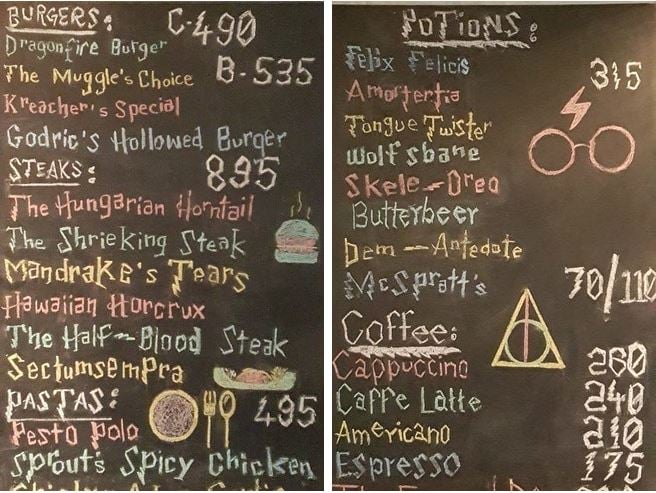 BURGERS: C-490
Dragonfire Burger
The Muggle's Choice B-535
Kreacher's Special
Godric's Hollowed Burger
STEAKS: 895
The Hungarian Horntail
The Shrieking Steak
Mandrake's Tears
Hawaiian Horcrux
The Half-Blood Steak
Sectumsempra
PASTAS: 495
Pesto Polo
Sprout's Spicy Chicken
POTIONS:
Felix Felicis 315
Amortertia
Tongue Twister
Wolfsbane
Skele-Oreo
Butterbeer
Dem-Antedote
McSpratt's 70/110
Coffee:
Cappuccino 260
Caffe Latte 240
Americano 210
Espresso 175